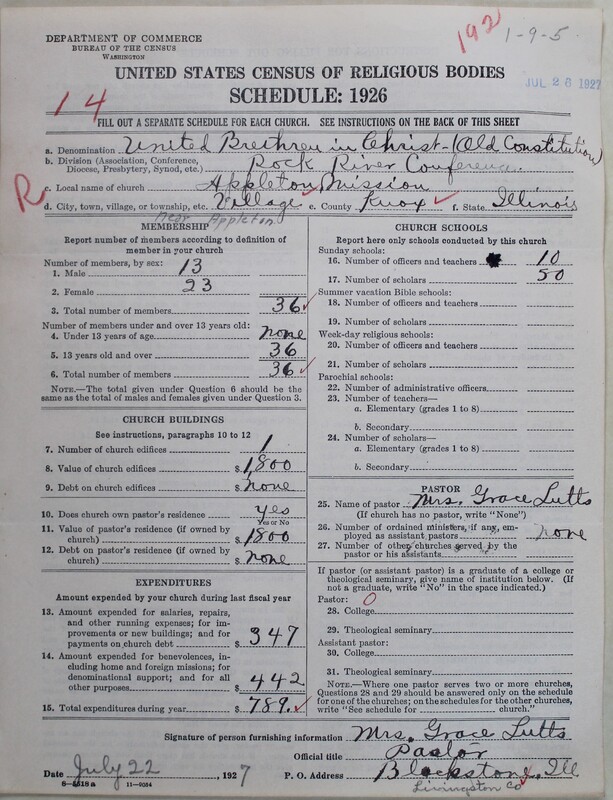 DEPARTMENT OF COMMERCE
BUREAU OF THE CENSUS
WASHINGTON
192
1-9-5
JUL 26 1927
UNITED STATES CENSUS OF RELIGIOUS BODIES
SCHEDULE: 1926
14
FILL OUT A SEPARATE SCHEDULE FOR EACH CHURCH. SEE INSTRUCTIONS ON THE BACK OF THIS SHEET
a. Denomination United Brethren in Christ-(Old Constitution)
b. Division (Association, Conference, Diocese, Presbytery, Synod, etc.) Rock River Conference
R
c. Local name of church Appleton Mission
d. City, town, village, or township, etc. Village e. County Knox f. State Illinois
near Appleton
MEMBERSHIP
Report number of members according to definition of member in your church
Number of members, by sex:
1. Male 13
2. Female 23
3. Total number of members 36
Number of members under and over 13 years old:
4. Under 13 years of age none
5. 13 years old and over 36
6. Total number of members 36
NOTE.—The total given under Question 6 should be the same as the total of males and females given under Question 3.
CHURCH BUILDINGS
See instructions, paragraphs 10 to 12
7. Number of church edifices 1
8. Value of church edifices $ 1,800
9. Debt on church edifices $ none
10. Does church own pastor's residence? yes
Yes or No
11. Value of pastor's residence (if owned by church) $ 1800
12. Debt on pastor's residence (if owned by church) $ none
EXPENDITURES
Amount expended by your church during last fiscal year
13. Amount expended for salaries, repairs, and other running expenses; for improvements or new buildings; and for payments on church debt $ 347
14. Amount expended for benevolences, including home and foreign missions; for denominational support; and for all other purposes $ 442
15. Total expenditures during year $ 789.
CHURCH SCHOOLS
Report here only schools conducted by this church
Sunday schools:
16. Number of officers and teachers 10
17. Number of scholars 50
Summer vacation Bible schools:
18. Number of officers and teachers
19. Number of scholars
Week-day religious schools:
20. Number of officers and teachers
21. Number of scholars
Parochial schools:
22. Number of administrative officers
23. Number of teachers—
a. Elementary (grades 1 to 8)
b. Secondary
24. Number of scholars—
a. Elementary (grades 1 to 8)
b. Secondary
PASTOR
25. Name of pastor Mrs. Grace Lutts
(If church has no pastor, write "None")
26. Number of ordained ministers, if any, employed as assistant pastors none
27. Number of other churches served by the pastor or his assistants
If pastor (or assistant pastor) is a graduate of a college or theological seminary, give name of institution below. (If not a graduate, write "No" in the space indicated.)
Pastor: 0
28. College
29. Theological seminary
Assistant pastor:
30. College
31. Theological seminary
NOTE.—Where one pastor serves two or more churches, Questions 28 and 29 should be answered only on the schedule for one of the churches; on the schedules for the other churches, write "See schedule for church."
Signature of person furnishing information Mrs. Grace Lutts
Official title Pastor
Date July 22, 1927 P. O. Address Blackstone, Ill
Livingston Co
8-5518a 11-9034